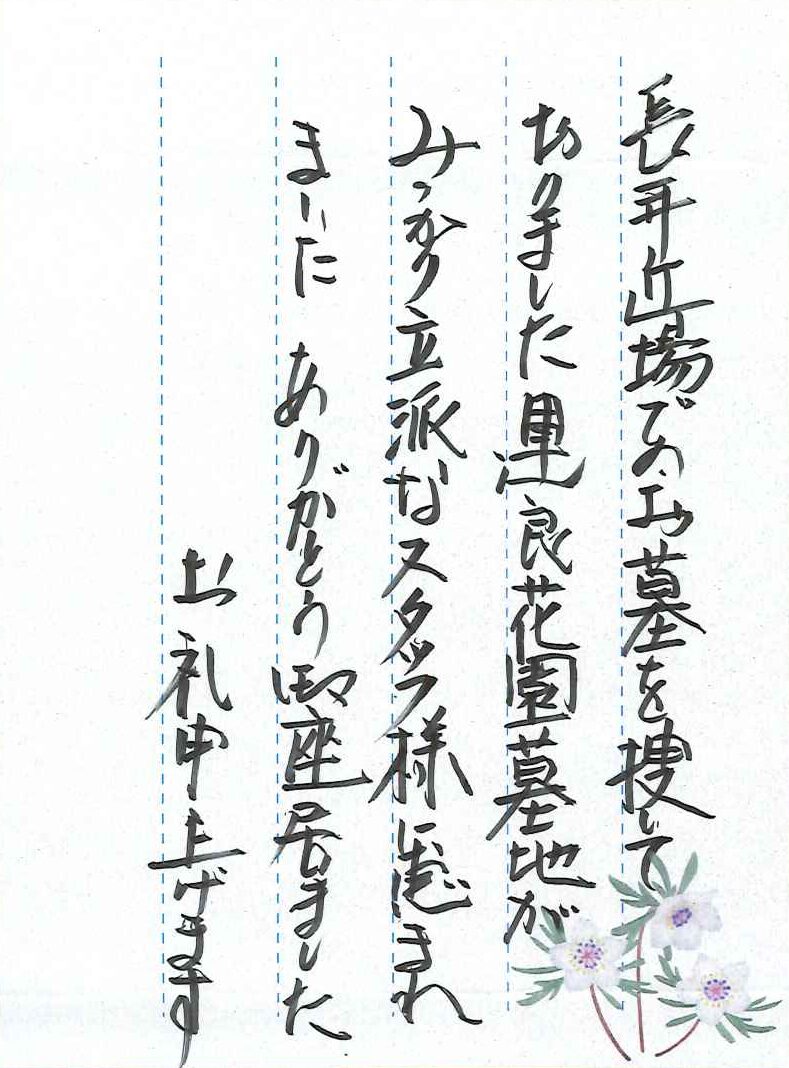 長井近場でのお墓を捜して
おりました運良花園墓地が
みつかり立派なスタッフ様に恵まれ
ましいた ありがとう御座居ました
お礼申上げます